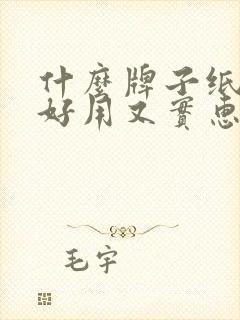 什麼牌子纸
好用又實惠
毛宇